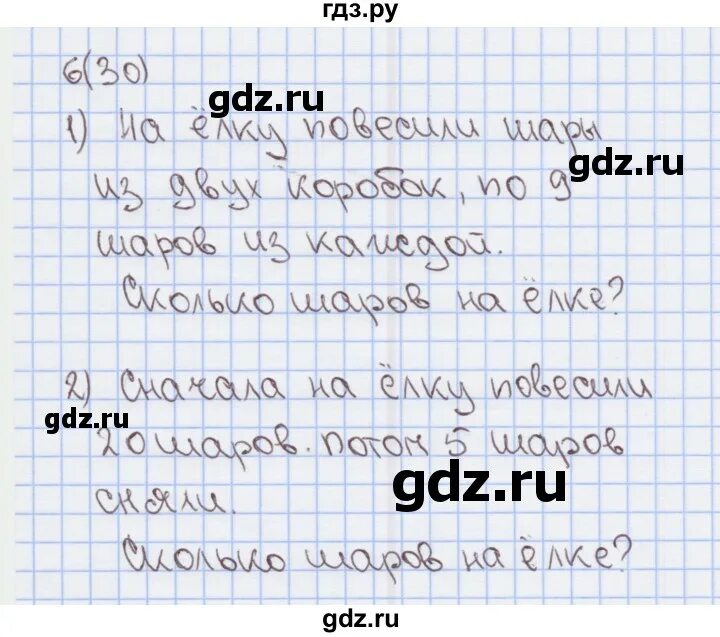 гдз.ру
6(30)
gdz.ru
1) На ёлку повесили шары
gdz.ru
из двух коробок, по 9
шаров из каждой.
Сколько шаров на ёлке?
2) Сначала на ёлку повесили
gdz.ru
20 шаров. потом 5 шаров
gdz.ru
сняли.
Сколько шаров на ёлке?
gdz.ru